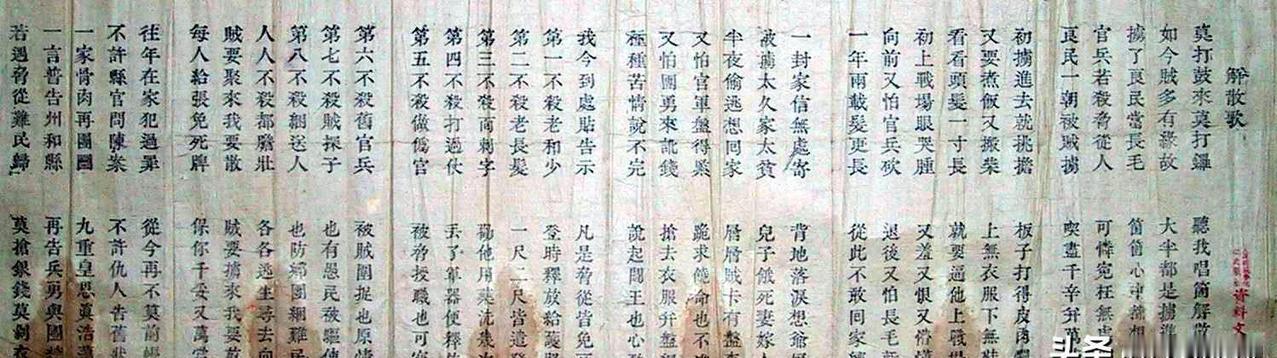 解散歌
莫打鼓來莫打鑼 聽我唱箇解散
如今賊多有緣故 大半都是擄進
擄了良民當長毛 箇箇心中都想
官兵若殺脅從人 可憐冤枉無處
良民一朝被賊擄 喫盡千辛并萬
初擄進去就挑擔 板子打得皮肉
又要煮飯又搬柴 上無衣服下無鞋
看看頭髮一寸長 就要逼他上戰場
初上戰場眼哭腫 又羞又恨又懵
向前又怕官兵砍 退後又怕長毛
一年兩載髮更長 從此不敢回家
一封家信無處寄 背地落淚想爺
被擄太久家太貧 兒子餓死妻嫁人
半夜偷逃想回家 層層賊卡有盤查
又怕官軍盤得緊 跪求饒命也不
又怕團勇來訛錢 搶去衣服并盤
種種苦情說不完 說起閻王也心
我今到處貼告示 凡是脅從皆免
第一不殺老和少 登時釋放給護照
第二不殺老長髮 一尺二尺皆遣
第三不殺面刺字 勸他用藥洗幾次
第四不殺打過仗 丟了軍器便釋
第五不殺做僞官 被脅授職也可
第六不殺舊官兵 被賊圍捉也原情
第七不殺賊探子 也有愚民被驅使
第八不殺綑送人 也防鄉團綑難民
人人不殺都膽壯 各各逃生尋去向
賊要聚來我要散 賊要擄來我要
每人給張免死牌 保你千妥又萬
往年在家犯過罪 從今再不莫
不許縣官問陳案 不許仇人告舊
一家骨肉再團圓 九重皇恩真浩
一言普告州和縣 再告兵勇與團
若遇脅從難民歸 莫搶銀錢莫剝衣
資料文
头条